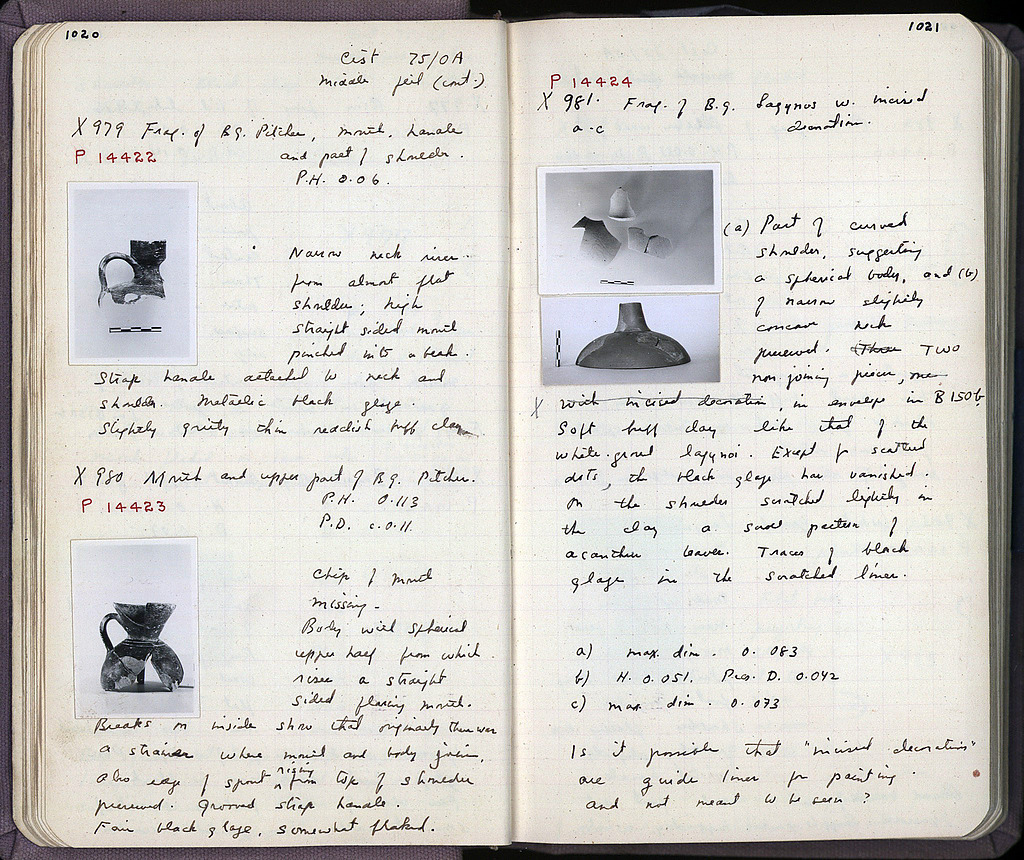 1020
Cist 75/OA
Middle fill (cont.)
X 979 Frag. of B.G. Pitcher, mouth, handle
P 14422 and part of shoulder.
P.H. 0.06.
Narrow neck rises
from almost flat
shoulder; high
straight sided mouth
pinched into a beak.
Strap handle attached to neck and
shoulder. Metallic black glaze.
Slightly gritty thin reddish buff clay
X 980 Mouth and upper part of B.G. Pitcher.
P 14423 P.H. 0.113
P.D. c. 0.11.
Chip of mouth
missing -
Body with spherical
upper half from which
rises a straight
sided flaring mouth.
Breaks on inside show that originally there was
a strainer where mouth and body join,
also edge of spout rising from top of shoulder
preserved. Grooved strap handle.
Fair black glaze, somewhat flaked.
1021
P 14424
X 981. Frag. of B.G. Lagynos w. incised
a-c decoration.
(a) Part of curved
shoulder, suggesting
a spherical body, and (b)
of narrow slightly
concave neck
preserved. (Three TWO
non-joining pieces, one
X with incised decoration, in envelope in B 150b
Soft buff clay like that of the
white-ground lagynoi. Except for scattered
dots, the black glaze has vanished.
On the shoulder scratched lightly in
the clay a scroll pattern of
acanthus leaves. Traces of black
glaze in the scratched lines.
a) max. dim. 0.083
b) H. 0.051. Pres. D. 0.042
c) max dim. 0.073
Is it possible that "incised decoration"
are guide lines for painting
and not meant to be seen?